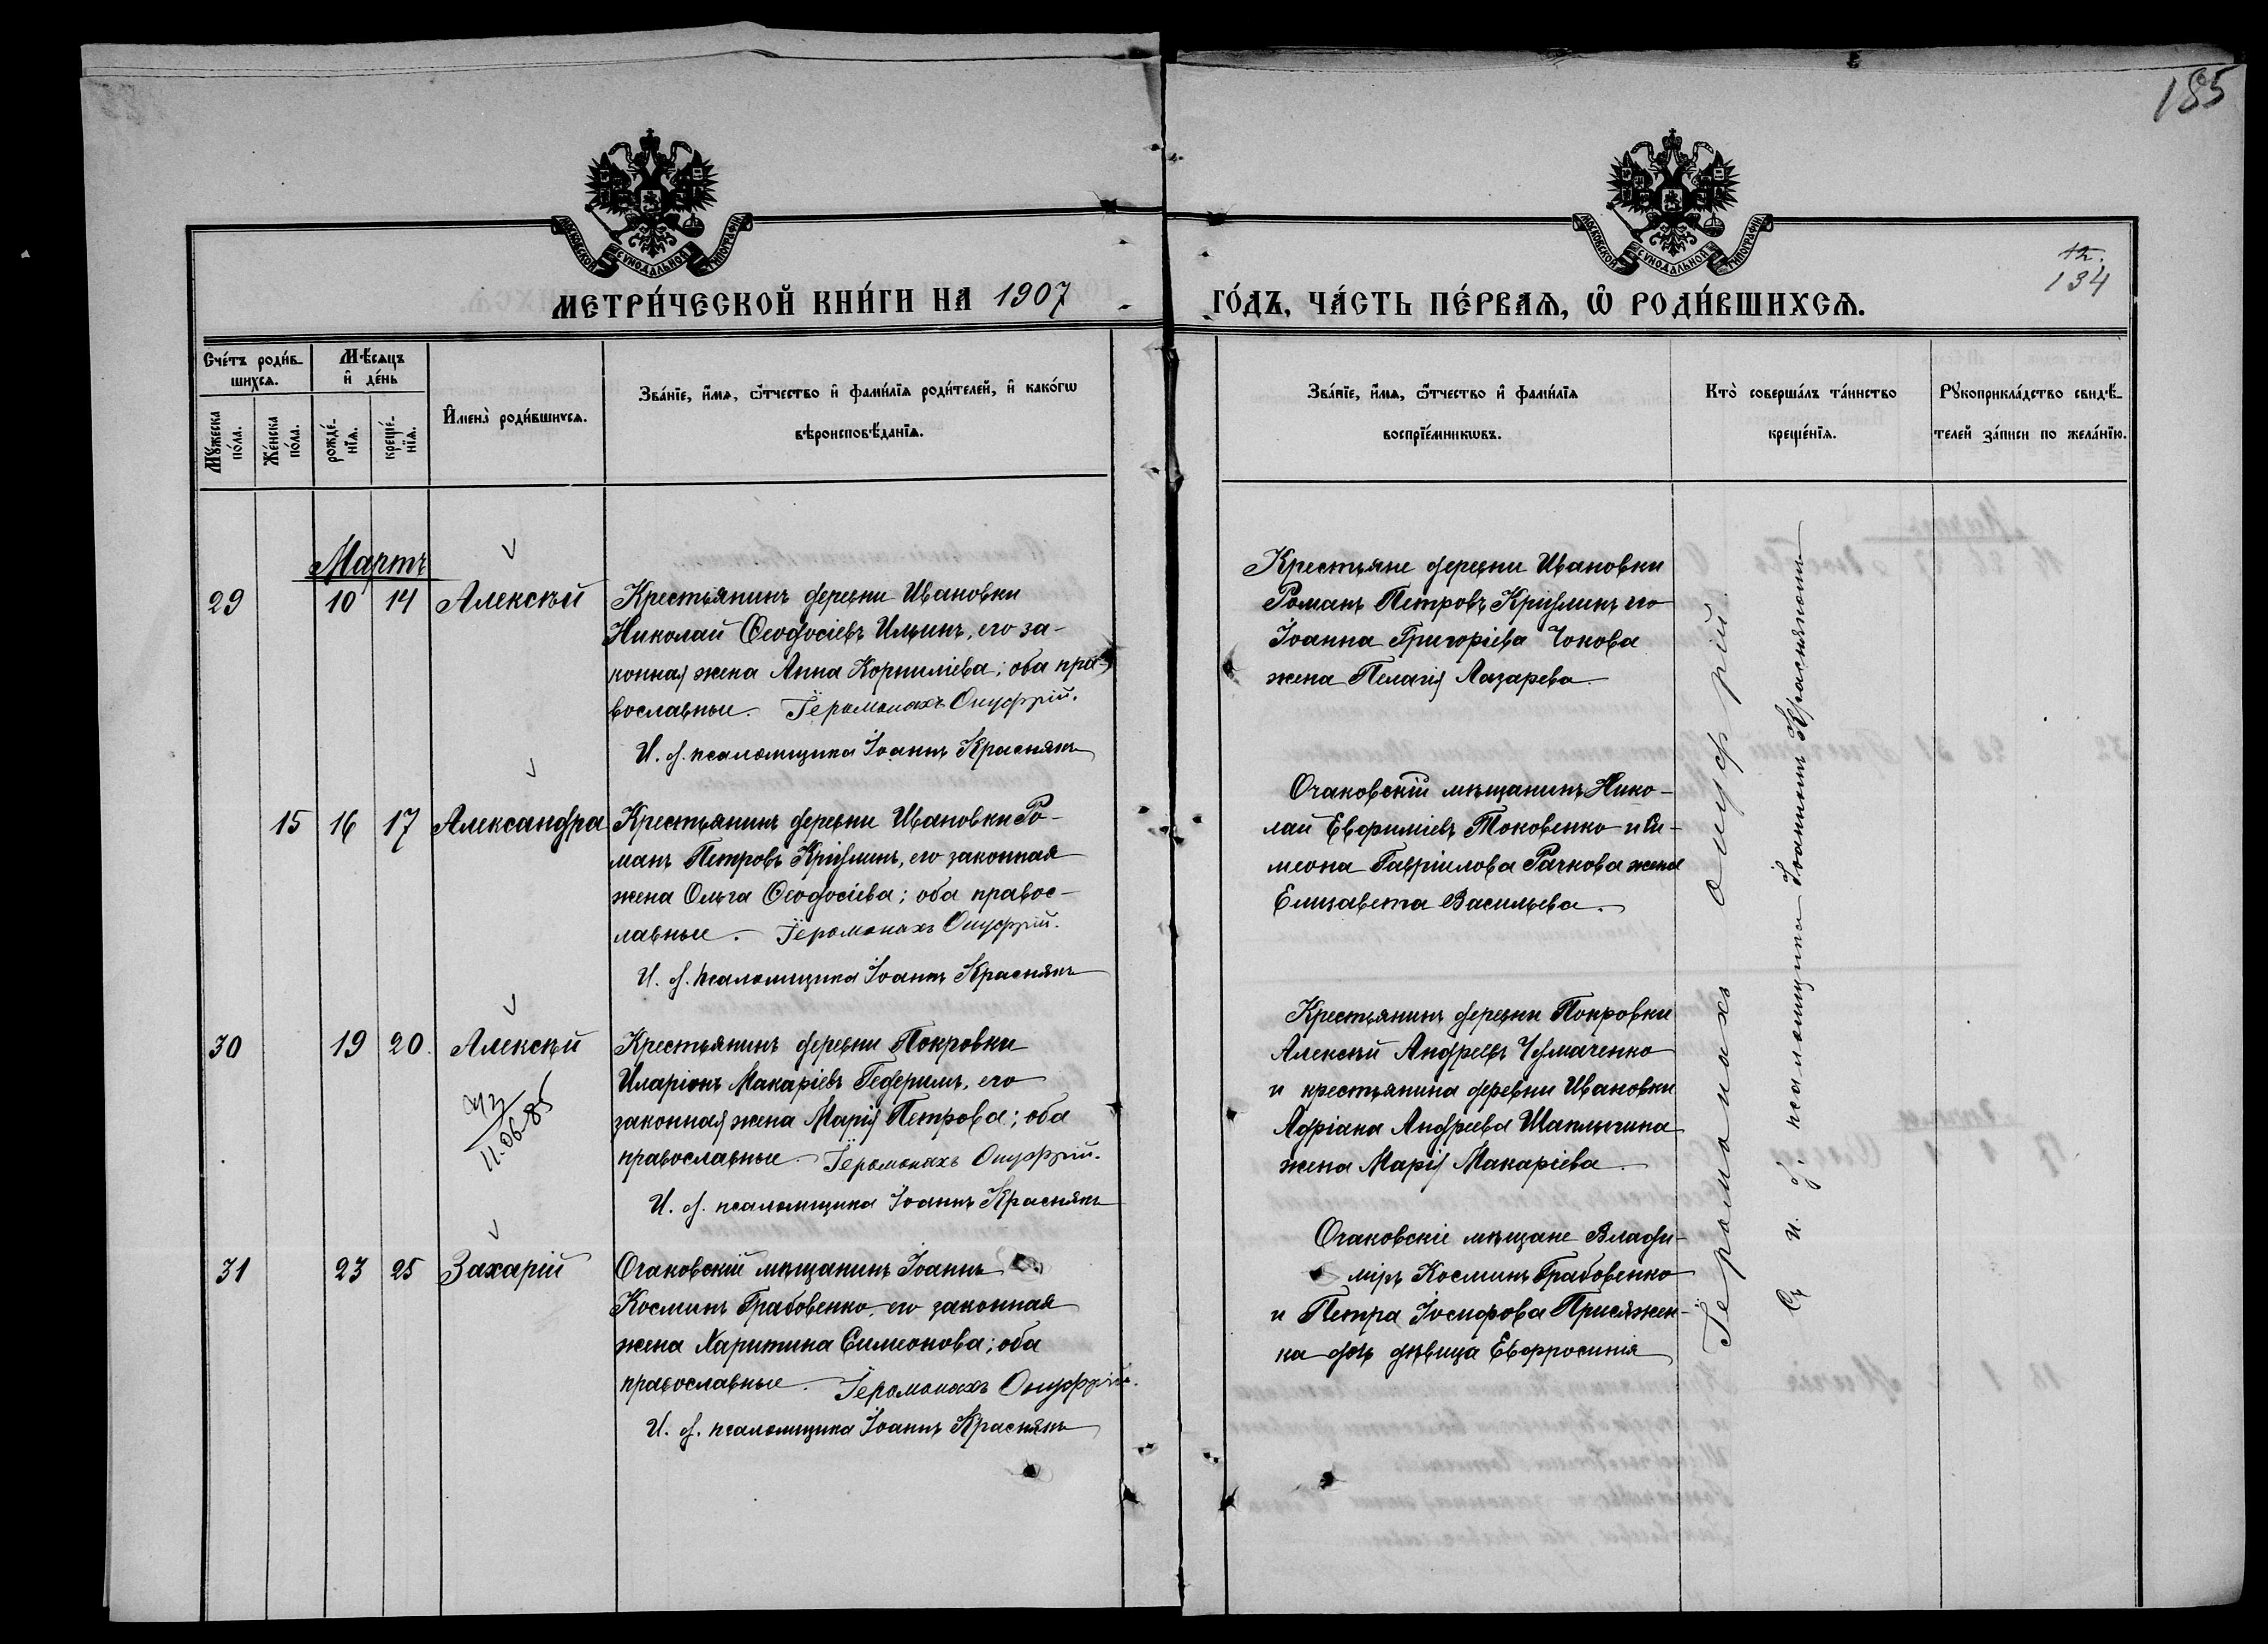 185
МОСКОВСКОЙ СѴНОДАЛЬНОЙ ТИПОГРАФІИ
МОСКОВСКОЙ СѴНОДАЛЬНОЙ ТИПОГРАФІИ
134
МЕТРИ́ЧЕСКОЙ КНИ́ГИ НА 1907
ГО́ДЪ, ЧА́СТЬ ПЕ́РВАѦ, Ѡ҆ РОДИ́ВШИХСѦ.
Сче́тъ роди́в-
шихсѧ.
Мѣ́сѧцъ
и҆ де́нь
Мꙋ́жеска
по́ла.
Же́нска
по́ла.
рожде́-
нїѧ.
креще́-
нїѧ.
И҆мена̀ роди́вшихсѧ.
Зва́нїе, и҆́мѧ, ѻ҆́тчество и҆ фами́лїѧ роди́телей, и҆ како́гѡ
вѣроисповѣ́данїѧ.
Зва́нїе, и҆́мѧ, ѻ҆́тчество и҆ фами́лїѧ
воспрїе́мникѡвъ.
Кто̀ соверша́лъ та́инство
креще́нїѧ.
Рꙋкоприкла́дство свидѣ́-
телей за́писи по жела́нїю.
Мартъ
29 10 14 Алексѣй
Крестьянинъ деревни Ивановки
Николай Ѳеодосіевъ Ильинъ, его за-
конная жена Анна Корниліева; оба пра-
вославные. Іеромонахъ Онуфрій.
И. д. псаломщика Іоаннъ Краснякъ
Крестьяне деревни Ивановки
Романъ Петровъ его
Іоанна Григоріева Чокова
жена Пелагія Лазарева
15 16 17 Александра
Крестьянинъ деревни Ивановки Ро-
манъ Петровъ его законная
жена Ольга Ѳеодосіева; оба правос-
лавные. Іеромонахъ Онуфрій.
И. д. псаломщика Іоаннъ Краснякъ
Очаковскій мѣщанинъ Нико-
лай Евфиміевъ Токовенко и Си-
меона Гавріилова Рачкова жена
Елизавета Васильева.
30 19 20. Алексѣй
11.06.85
Крестьянинъ деревни Покровки
Иларіонъ Макаріевъ его
законная жена Марія Петрова; оба
православные. Іеромонахъ Онуфрій.
И. д. псаломщика Іоаннъ Краснякъ
Крестьянинъ деревни Покровки
Алексѣй Андреевъ Чумаченко
и крестьянина деревни Ивановки
Адріана Андреева
жена Марія Макаріева.
31 23 25 Захарій
Очаковскій мѣщанинъ Іоаннъ
Косминъ Грабовенко, его законная
жена Харитина Симеонова; оба
православные. Іеромонахъ Онуфрій.
И. д. псаломщика Іоаннъ Краснякъ
Очаковскіе мѣщане Влади-
міръ Косминъ Грабовенко
и Петра Іосифова Присяжен-
ка дочь дѣвица Евфросинія
Іеромонахъ Онуфрій.
Съ и. д. псаломщика Іоанномъ Краснякомъ